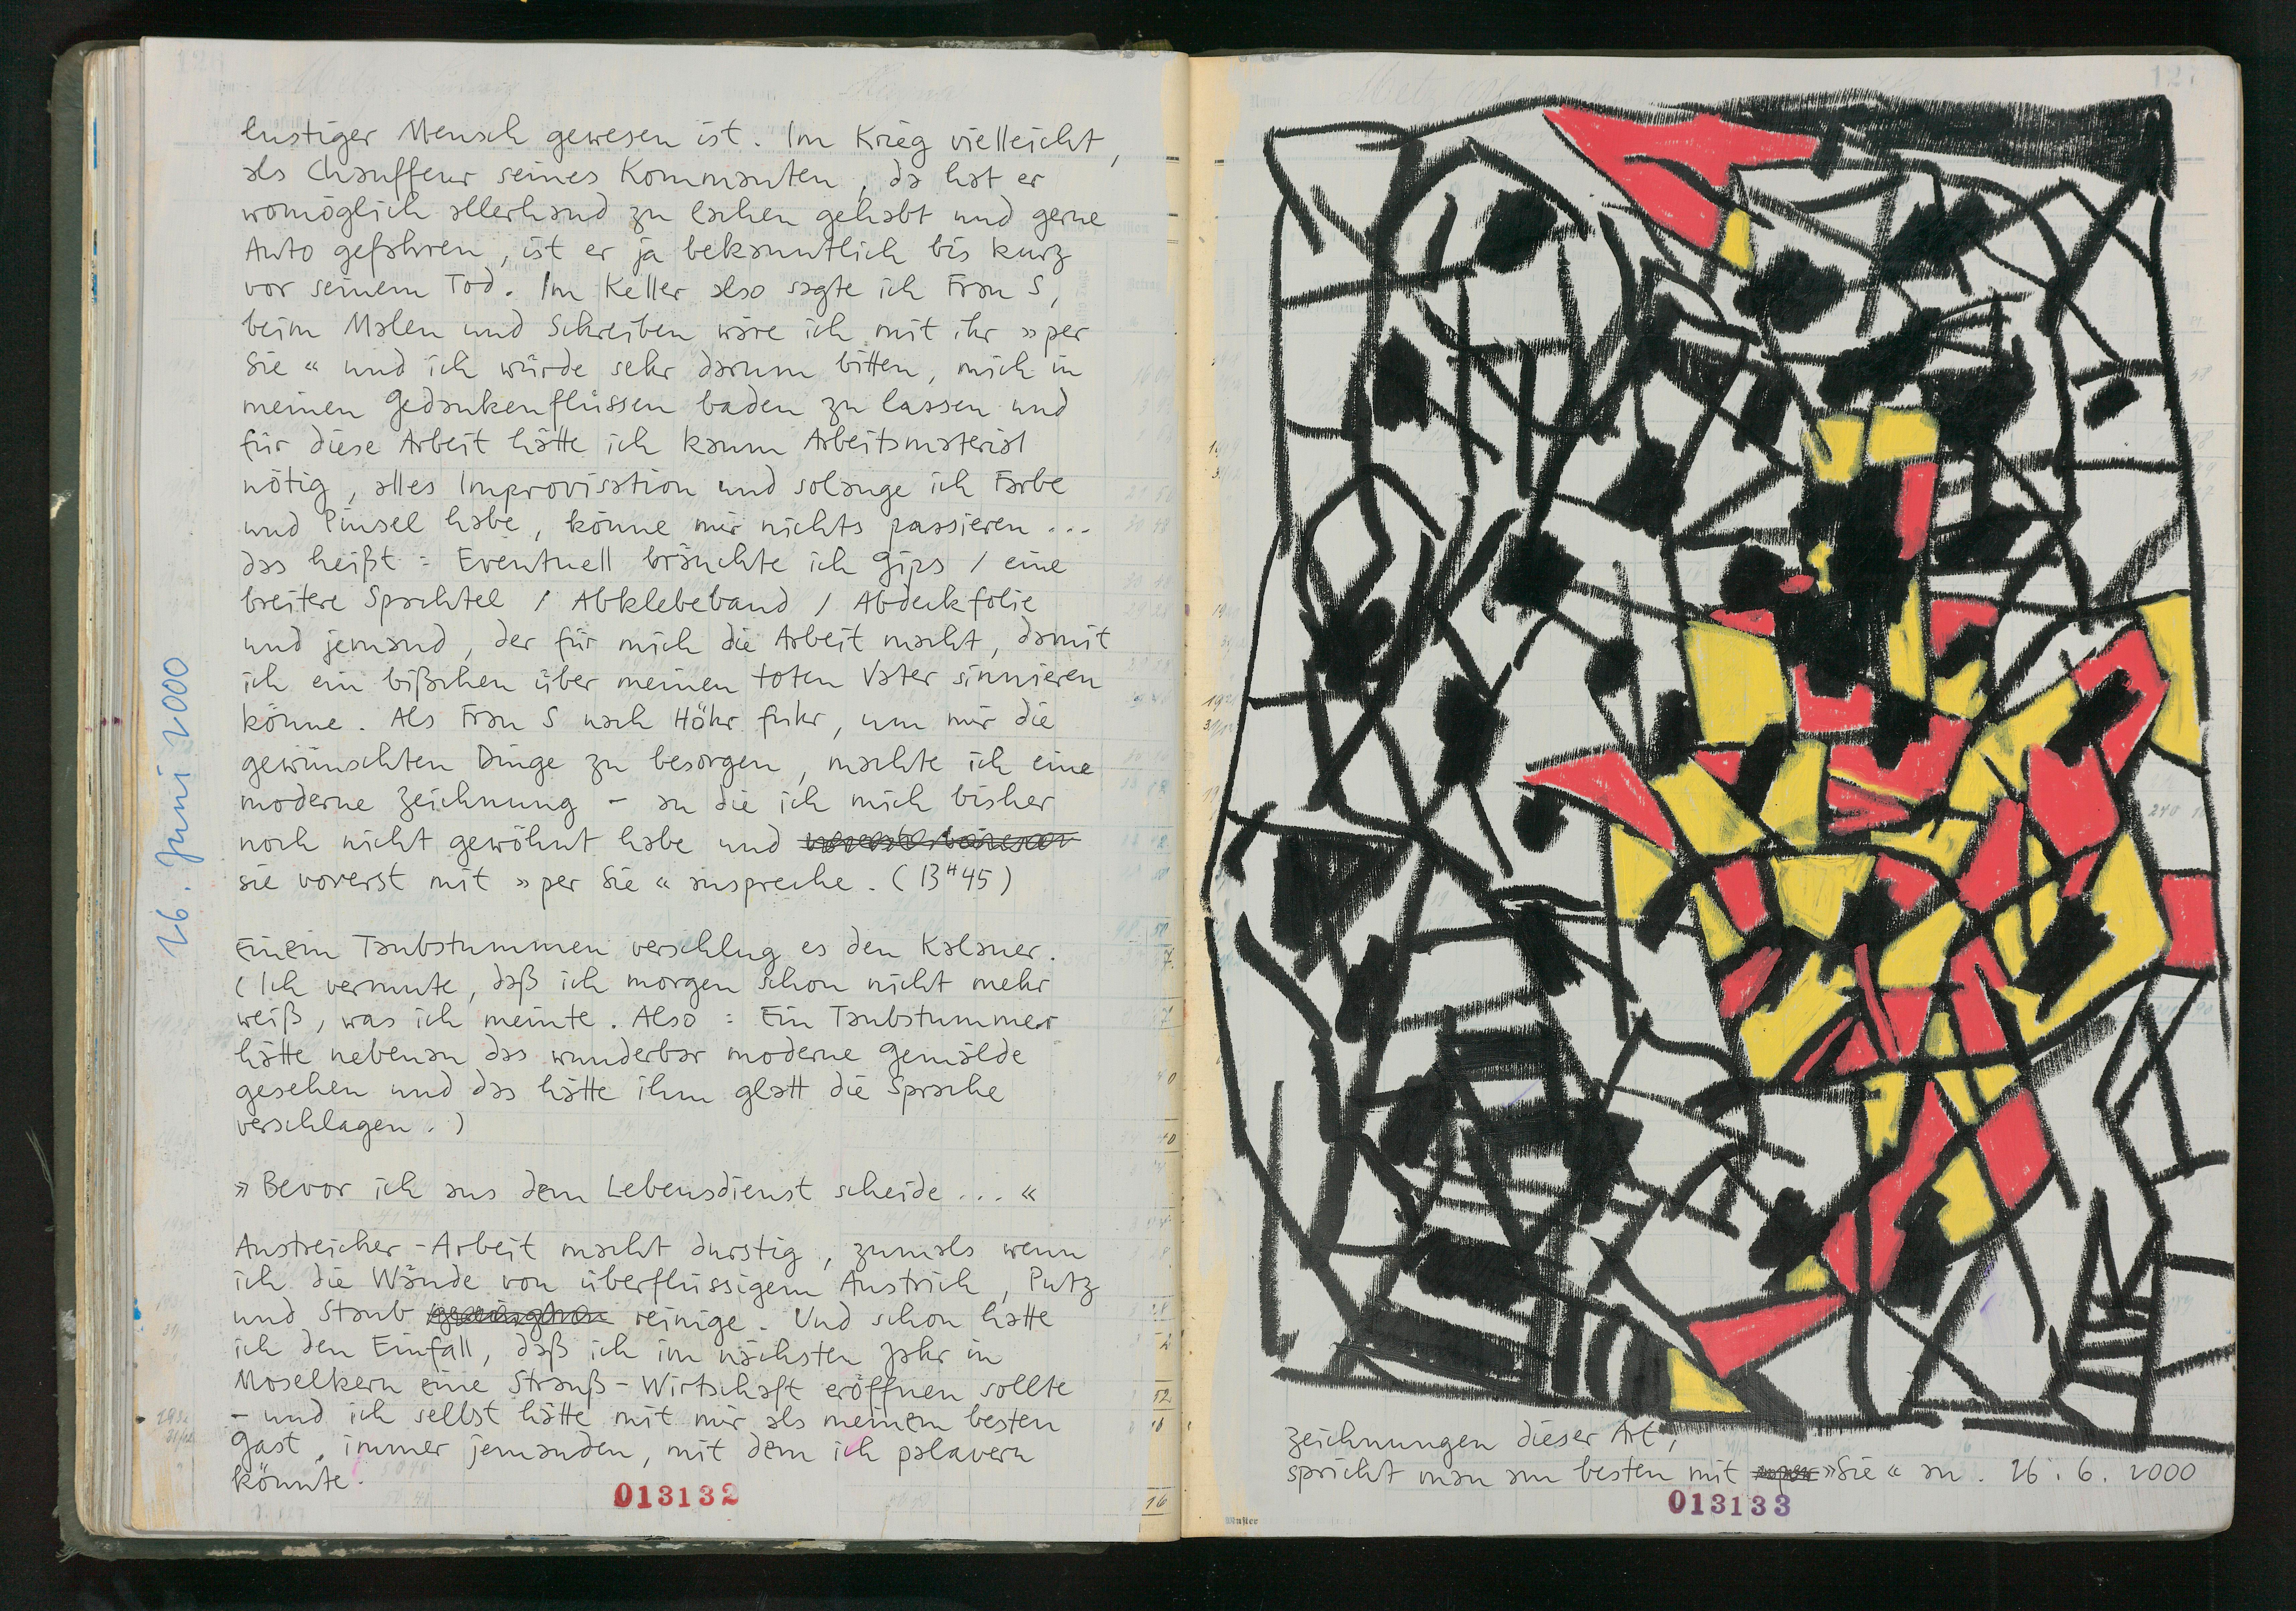 lustiger Mensch gewesen ist. Im Krieg vielleicht,
als Chauffeur seines Kommanten, da hat er
womöglich allerhand zu lachen gehabt und gerne
Auto gefahren, ist er ja bekanntlich bis kurz
vor seinem Tod. Im Keller also sagte ich Frau S,
beim Malen und Schreiben wäre ich mit ihr »per
Sie« und ich würde sehr darum bitten, mich in
meinen Gedankenflüssen baden zu lassen und
für diese Arbeit hätte ich kaum Arbeitsmaterial
nötig, alles Improvisation und solange ich Farbe
und Pinsel habe, könne mir nichts passieren ...
das heißt: Eventuell bräuchte ich Gips / eine
breitere Spachtel / Abklebeband / Abdeckfolie
und jemand, der für mich die Arbeit macht, damit
ich ein bißchen über meinen toten Vater sinnieren
könne. Als Frau S nach Höhr fuhr, um mir die
gewünschten Dinge zu besorgen, machte ich eine
moderne Zeichnung – an die ich mich bisher
noch nicht gewöhnt habe und
sie vorerst mit »per Sie« anspreche. (13H45)
26. Juni 2000
Einem Taubstummen verschlug es den Kalauer.
(Ich vermute, daß ich morgen schon nicht mehr
weiß, was ich meinte. Also: Ein Taubstummer
hätte nebenan das wunderbar moderne Gemälde
gesehen und das hätte ihm glatt die Sprache
verschlagen.)
»Bevor ich aus dem Lebensdienst scheide ...«
Anstreicher-Arbeit macht durstig, zumals wenn
ich die Wände von überflüssigem Anstrich, Putz
und Staub reinige. Und schon hatte
ich den Einfall, daß ich im nächsten Jahr in
Moselkern eine Strauß-Wirtschaft eröffnen sollte
– und ich selbst hätte mit mir als meinem besten
Gast, immer jemanden, mit dem ich palavern
könnte.
013132
Zeichnungen dieser Art,
spricht man am besten mit »Sie« an. 26.6.2000
013133